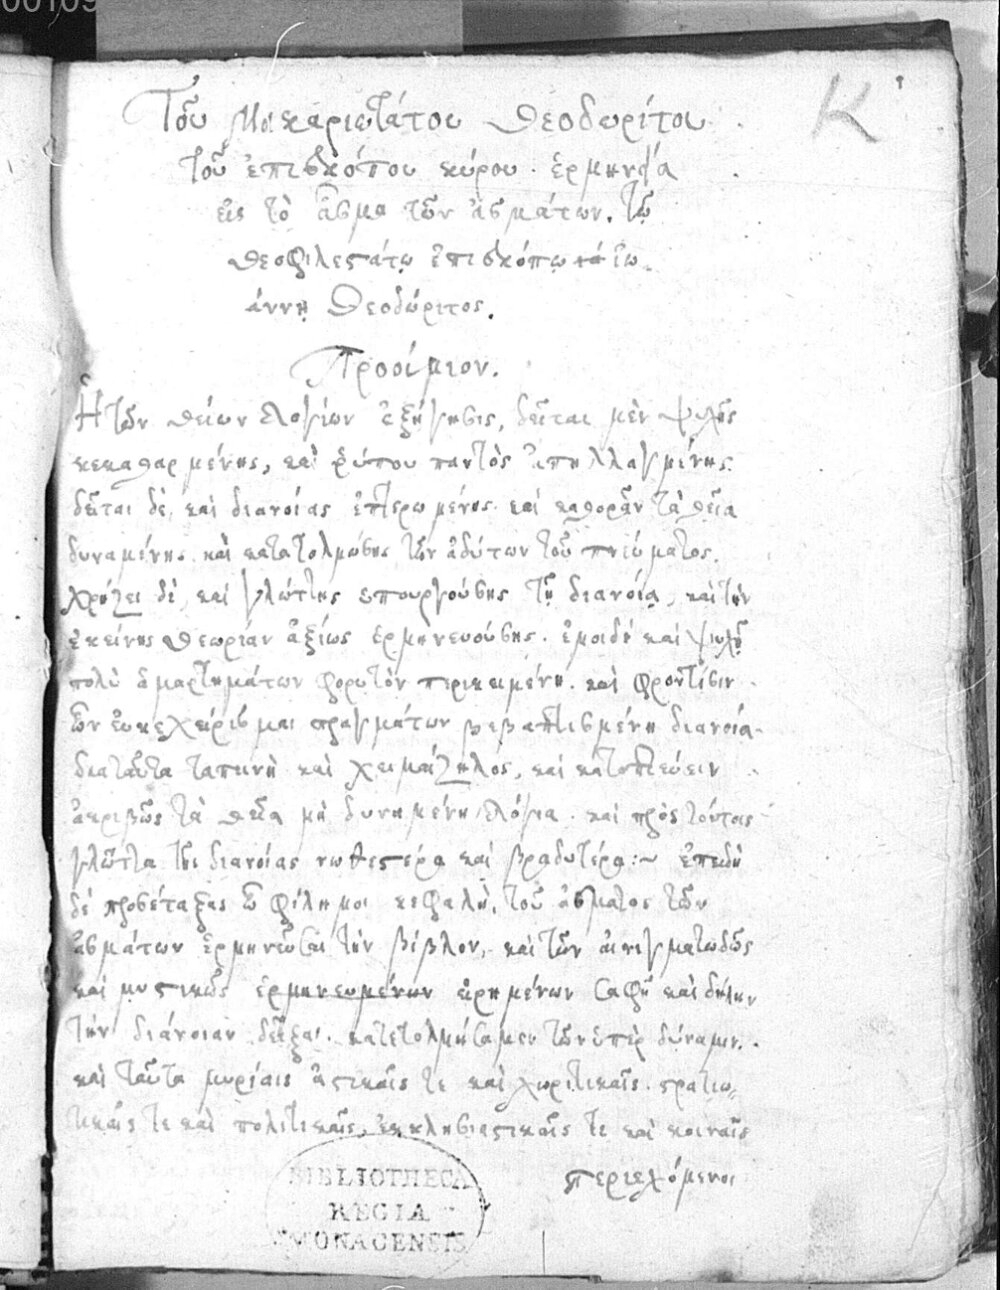 00109
K
Τοῦ Μακαριωτάτου Θεοδωρίτου
τοῦ ἐπισκόπου κύρου ἑρμηνεία
εἰς τὸ ἆσμα τῶν ἀσμάτων. τῷ
θεοφιλεστάτῳ ἐπισκόπῳ ἰω
άννῃ Θεοδώριτος.
Προοίμιον.
Ἡ τῶν θείων λογίων ἐξήγησις, δεῖται μὲν ψυχῆς
κεκαθαρμένης, καὶ ῥύπου παντὸς ἀπηλλαγμένης.
δεῖται δὲ, καὶ διανοίας ἐπτερωμένης. καὶ καθορᾶν τὰ θεῖα
δυναμένης. καὶ κατατολμώσης τῶν ἀδύτων τοῦ πνεύματος.
χρήζει δὲ, καὶ γλώττης ὑπουργούσης τῇ διανοίᾳ, καὶ τὴν
ἐκείνης θεωρίαν ἀξίως ἑρμηνευούσης. ἐμοὶ δὴ καὶ ψυχὴ
πολὺν ἁμαρτημάτων φορυτὸν περικειμένη. καὶ φροντίσιν
ὧν ἐγκεχείρισμαι πραγμάτων βεβαπτισμένη διανοία.
διὰ ταῦτα ταπεινὴ καὶ χαμαίζηλος, καὶ κατοπτεύειν
ἀκριβῶς τὰ θεῖα μὴ δυναμένη λόγια. καὶ πρὸς τούτοις
γλῶττα τῆς διανοίας νωθεστέρα καὶ βραδυτέρα:~ ἐπειδὴ
δὲ προσέταξας ὦ φίλη μοι κεφαλὴ, τοῦ ἄσματος τῶν
ἀσμάτων ἑρμηνεῦσαι τὴν βίβλον, καὶ τῶν αἰνιγματωδῶς
καὶ μυστικῶς ἑρμηνευμένων εἰρημένων σαφῆ καὶ δήλην
τὴν διάνοιαν δεῖξαι. κατετολμήσαμεν τῶν ὑπὲρ δύναμιν.
καὶ ταῦτα μυρίαις ἀστικαῖς τε καὶ χωριτικαῖς. στρατιω
τικαῖς τε καὶ πολιτικαῖς, ἐκκλησιαστικαῖς τε καὶ κοιναῖς
περιελκόμενοι
BIBLIOTHECA
REGIA
MONACENSIS